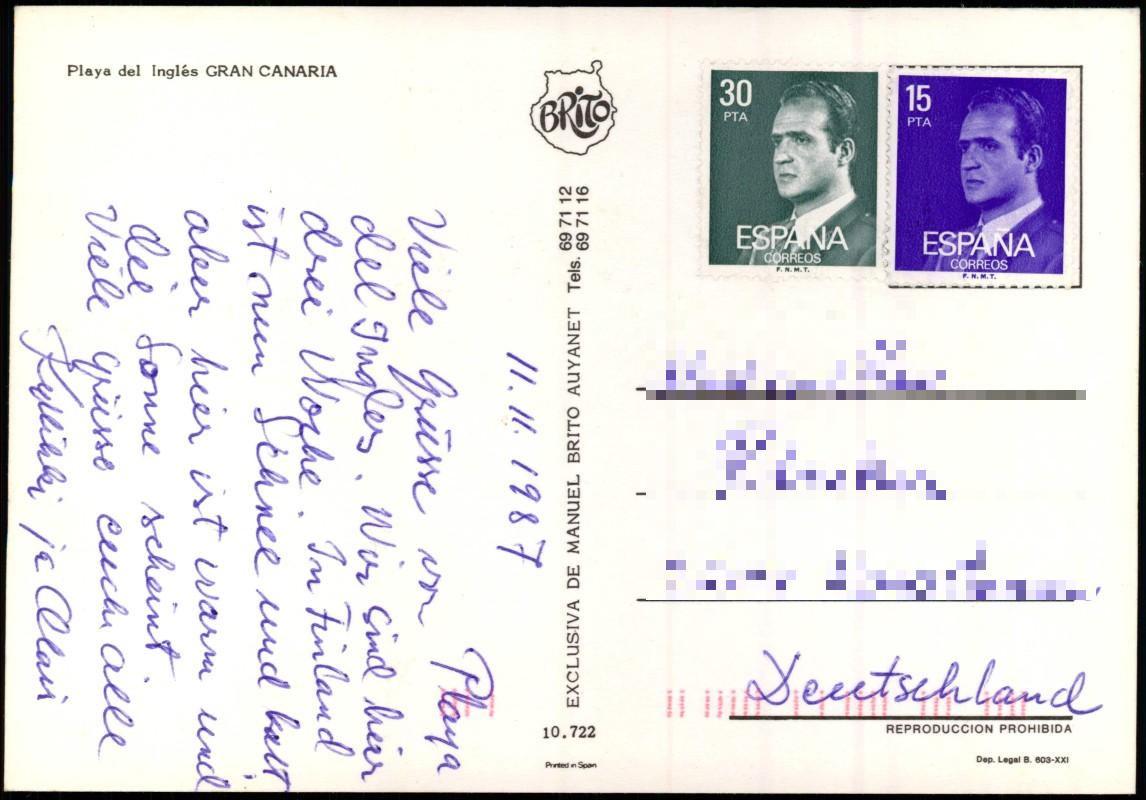 Playa del Inglés GRAN CANARIA
BRITO
EXCLUSIVA DE MANUEL BRITO AUYANET Tels. 69 71 12
69 71 16
10.722
Printed in Spain
11.11.1987
Viele Grüsse von Playa
del Ingles. Wir sind hier
drei Woche. In Finland
ist nun Schnee und kalt
aber hier ist warm und
die Sonne scheint.
Viele grüsse euch alle
ja
30
PTA
ESPAÑA
CORREOS
F.N.M.T.
15
PTA
ESPAÑA
CORREOS
F.N.M.T.
Deutschland
REPRODUCCION PROHIBIDA
Dep. Legal B. 603-XXI